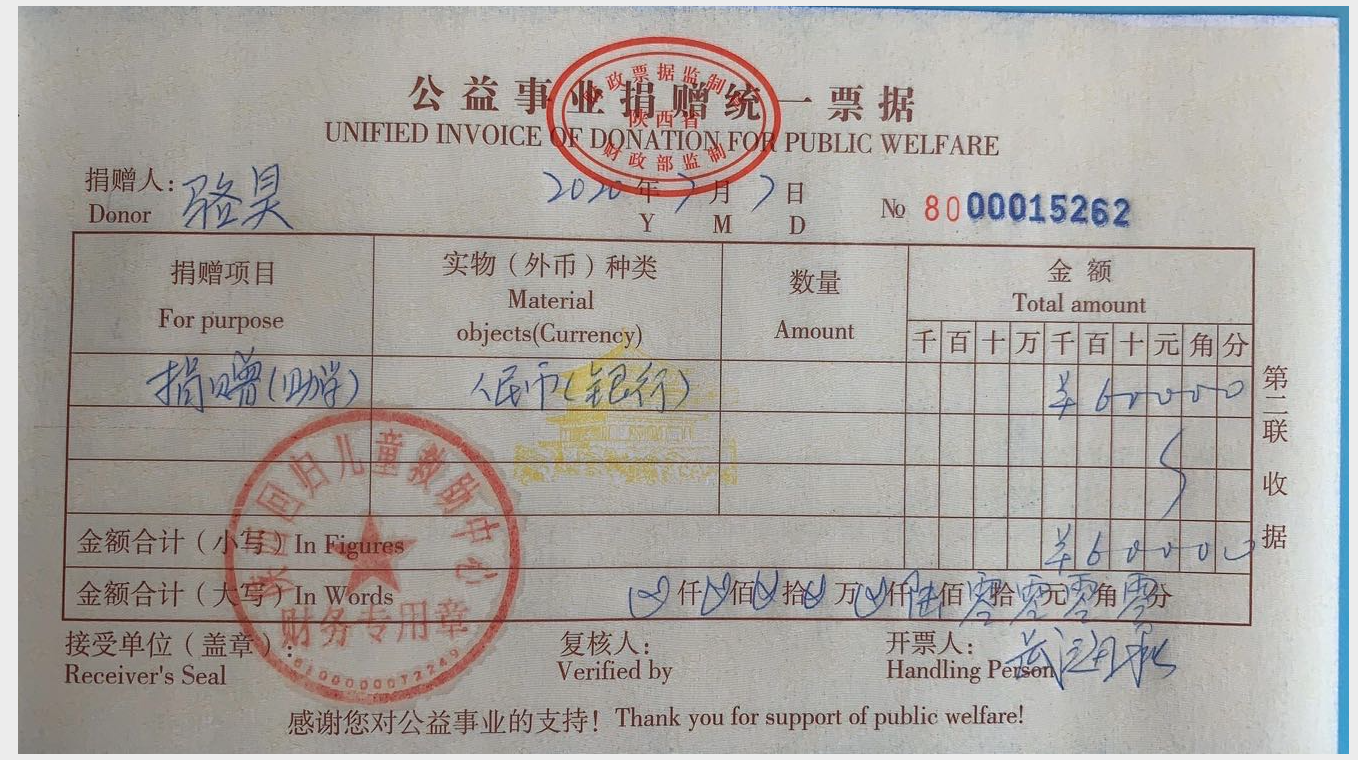 公益事业捐赠统一票据
UNIFIED INVOICE OF DONATION FOR PUBLIC WELFARE
财政票据监制章
陕西省
财政部监制
捐赠人: 骆昊
Donor
2020年7月7日
Y M D
No 8000015262
捐赠项目
For purpose
实物(外币)种类
Material
objects(Currency)
数量
Amount
金额
Total amount
千 百 十 万 千 百 十 元 角 分
捐赠(助学)
人民币(银行)
¥60000
金额合计(小写) In Figures
¥60000
金额合计(大写) In Words
仟 佰 拾 万 仟陆佰零拾零元零角零分
陕西回归儿童救助中心
财务专用章
6100000072249
接受单位(盖章):
Receiver's Seal
复核人:
Verified by
开票人:
Handling Person
感谢您对公益事业的支持! Thank you for support of public welfare!
第二联 收据